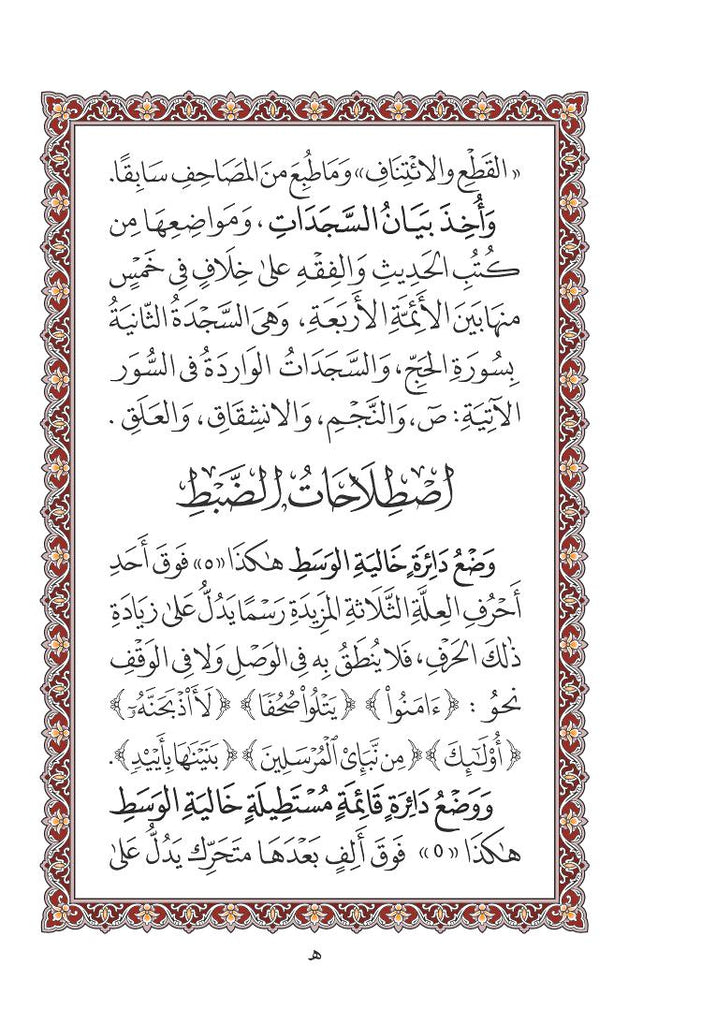 «القَطْعِ والِائْتِنَافِ» وَمَا طُبِعَ مِنَ المَصَاحِفِ سَابِقًا.
وَأُخِذَ بَيَانُ السَّجَدَاتِ، وَمَوَاضِعِهَا مِن
كُتُبِ الحَدِيثِ وَالفِقْهِ عَلىٰ خِلَافٍ فِي خَمْسٍ
مِنهَا بَيْنَ الأَئِمَّةِ الأَرْبَعَةِ، وَهِيَ السَّجْدَةُ الثَّانِيَةُ
بِسُورَةِ الحَجِّ، وَالسَّجَدَاتُ الوَارِدَةُ فِي السُّوَرِ
الآتِيَةِ: صٓ، وَالنَّجْمِ، وَالِانشِقَاقِ، وَالعَلَقِ.
اصْطِلَاحَاتُ الضَّبْطِ
وَضْعُ دَائِرَةٍ خَالِيَةِ الوَسَطِ هٰكَذَا «ه» فَوْقَ أَحَدِ
أَحْرُفِ العِلَّةِ الثَّلَاثَةِ المَزِيدَةِ رَسْمًا يَدُلُّ عَلىٰ زِيَادَةِ
ذٰلِكَ الحَرْفِ، فَلَا يُنطَقُ بِهِ فِي الوَصْلِ وَلَا فِي الوَقْفِ
نَحْوُ: ﴿ءَامَنُواْ﴾ ﴿يَتْلُواْ صُحُفٗا﴾ ﴿لَأَاْذۡبَحَنَّهُۥٓ﴾
﴿أُوْلَٰٓئِكَ﴾ ﴿مِن نَّبَإِيْ ٱلۡمُرۡسَلِينَ﴾ ﴿بَنَيۡنَٰهَا بِأَيۡيْدٖ﴾.
وَوَضْعُ دَائِرَةٍ قَائِمَةٍ مُسْتَطِيلَةٍ خَالِيَةِ الوَسَطِ
هٰكَذَا «٥» فَوْقَ أَلِفٍ بَعْدَهَا مُتَحَرِّك يَدُلُّ عَلىٰ
ه‍